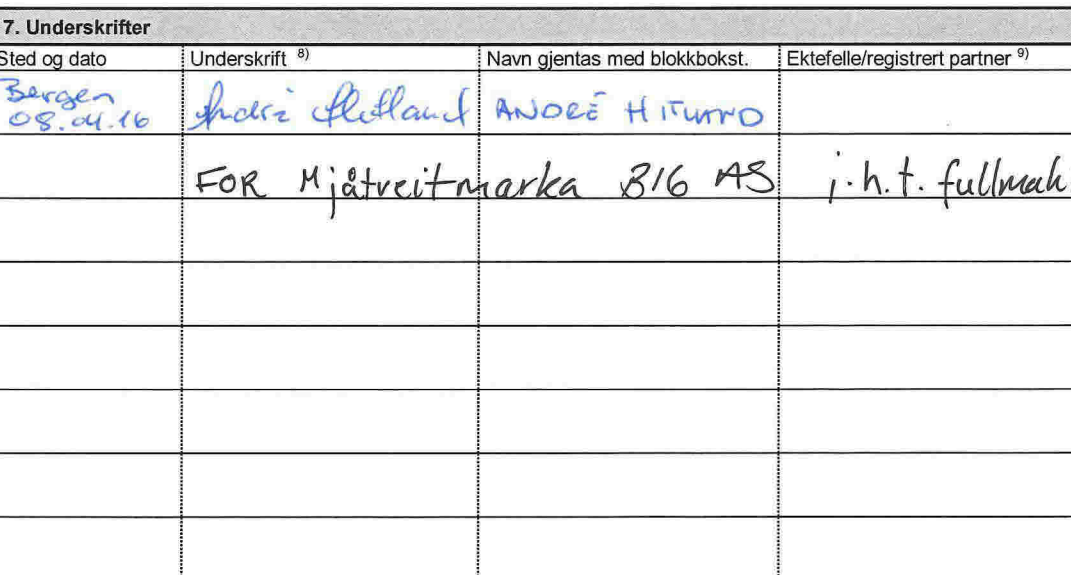 7. Underskrifter
Sted og dato Underskrift 8) Navn gjentas med blokkbokst. Ektefelle/registrert partner 9)
Bergen
08.04.16 André ANDRÉ
FOR Mjåtveitmarka B16 AS i.h.t. fullmak